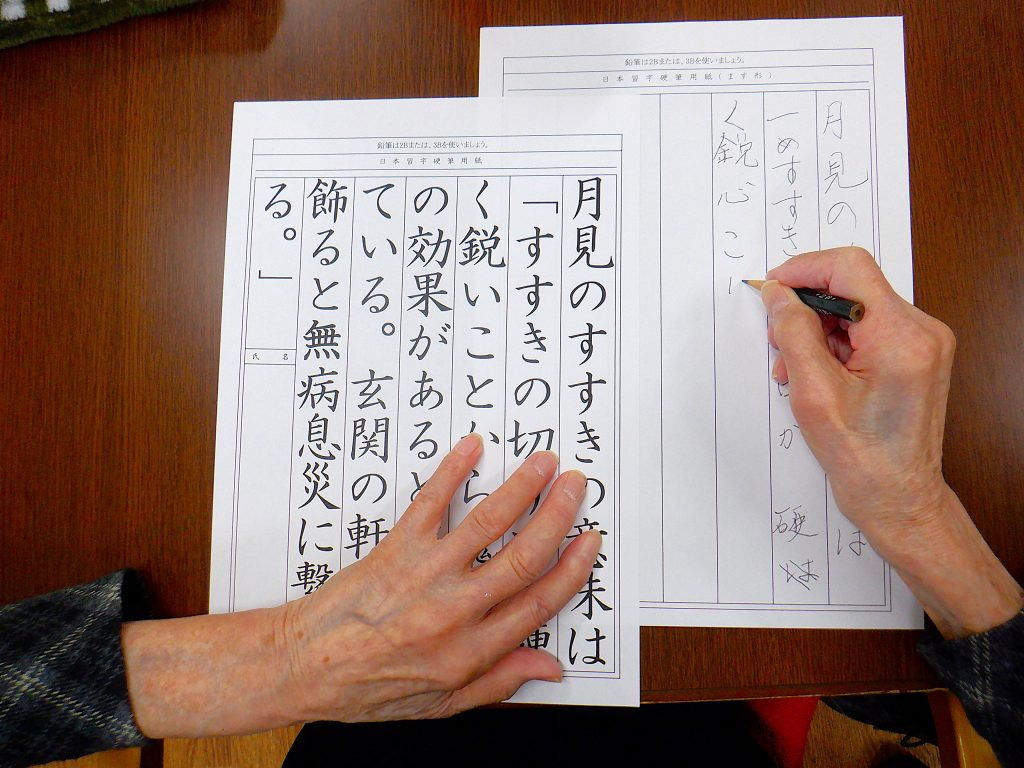 鉛筆は2Bまたは、3Bを使いましょう。
日本習字硬筆用紙
月見のすすきの意味は
「すすきの切
く鋭いことから
の効果があると
ている。玄関の軒
飾ると無病息災に繋
る。」
氏名
鉛筆は2Bまたは、3Bを使いましょう。
日本習字硬筆用紙(ます形)
月見の は
すすき が 硬
く鋭心こ